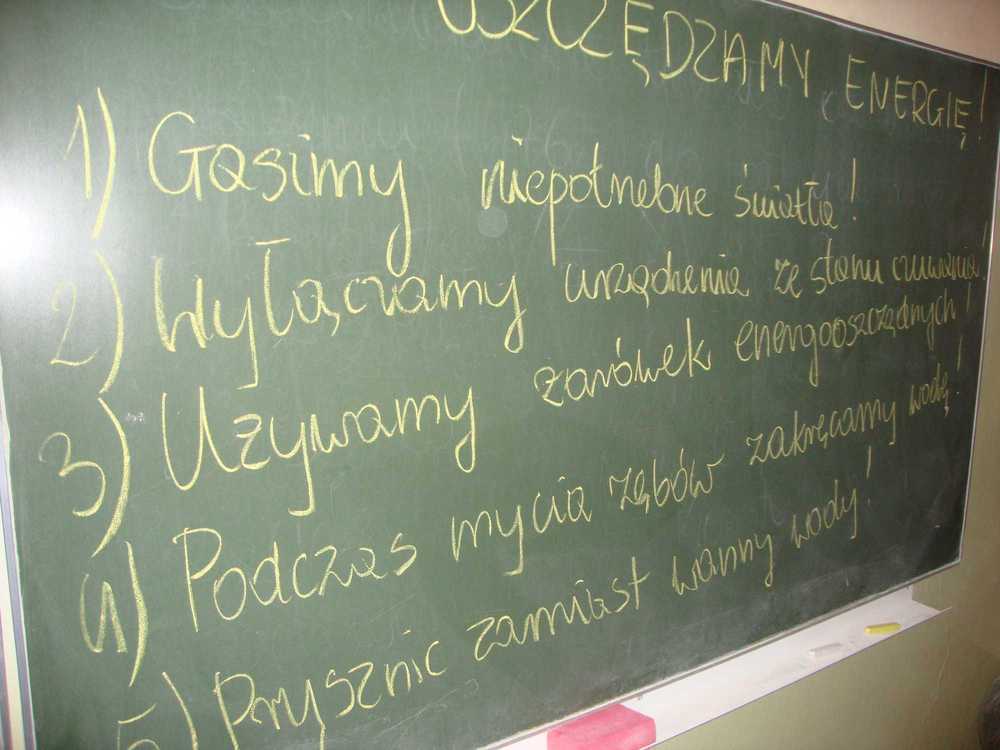 USZCZĘDZAMY ENERGIĘ!
1) Gasimy niepotrzebne światła!
2) Wyłączamy urządzenia ze stanu czuwania
3) Używamy żarówek energooszczędnych!
4) Podczas mycia zębów zakręcamy wodę!
5) Prysznic zamiast wanny wody!